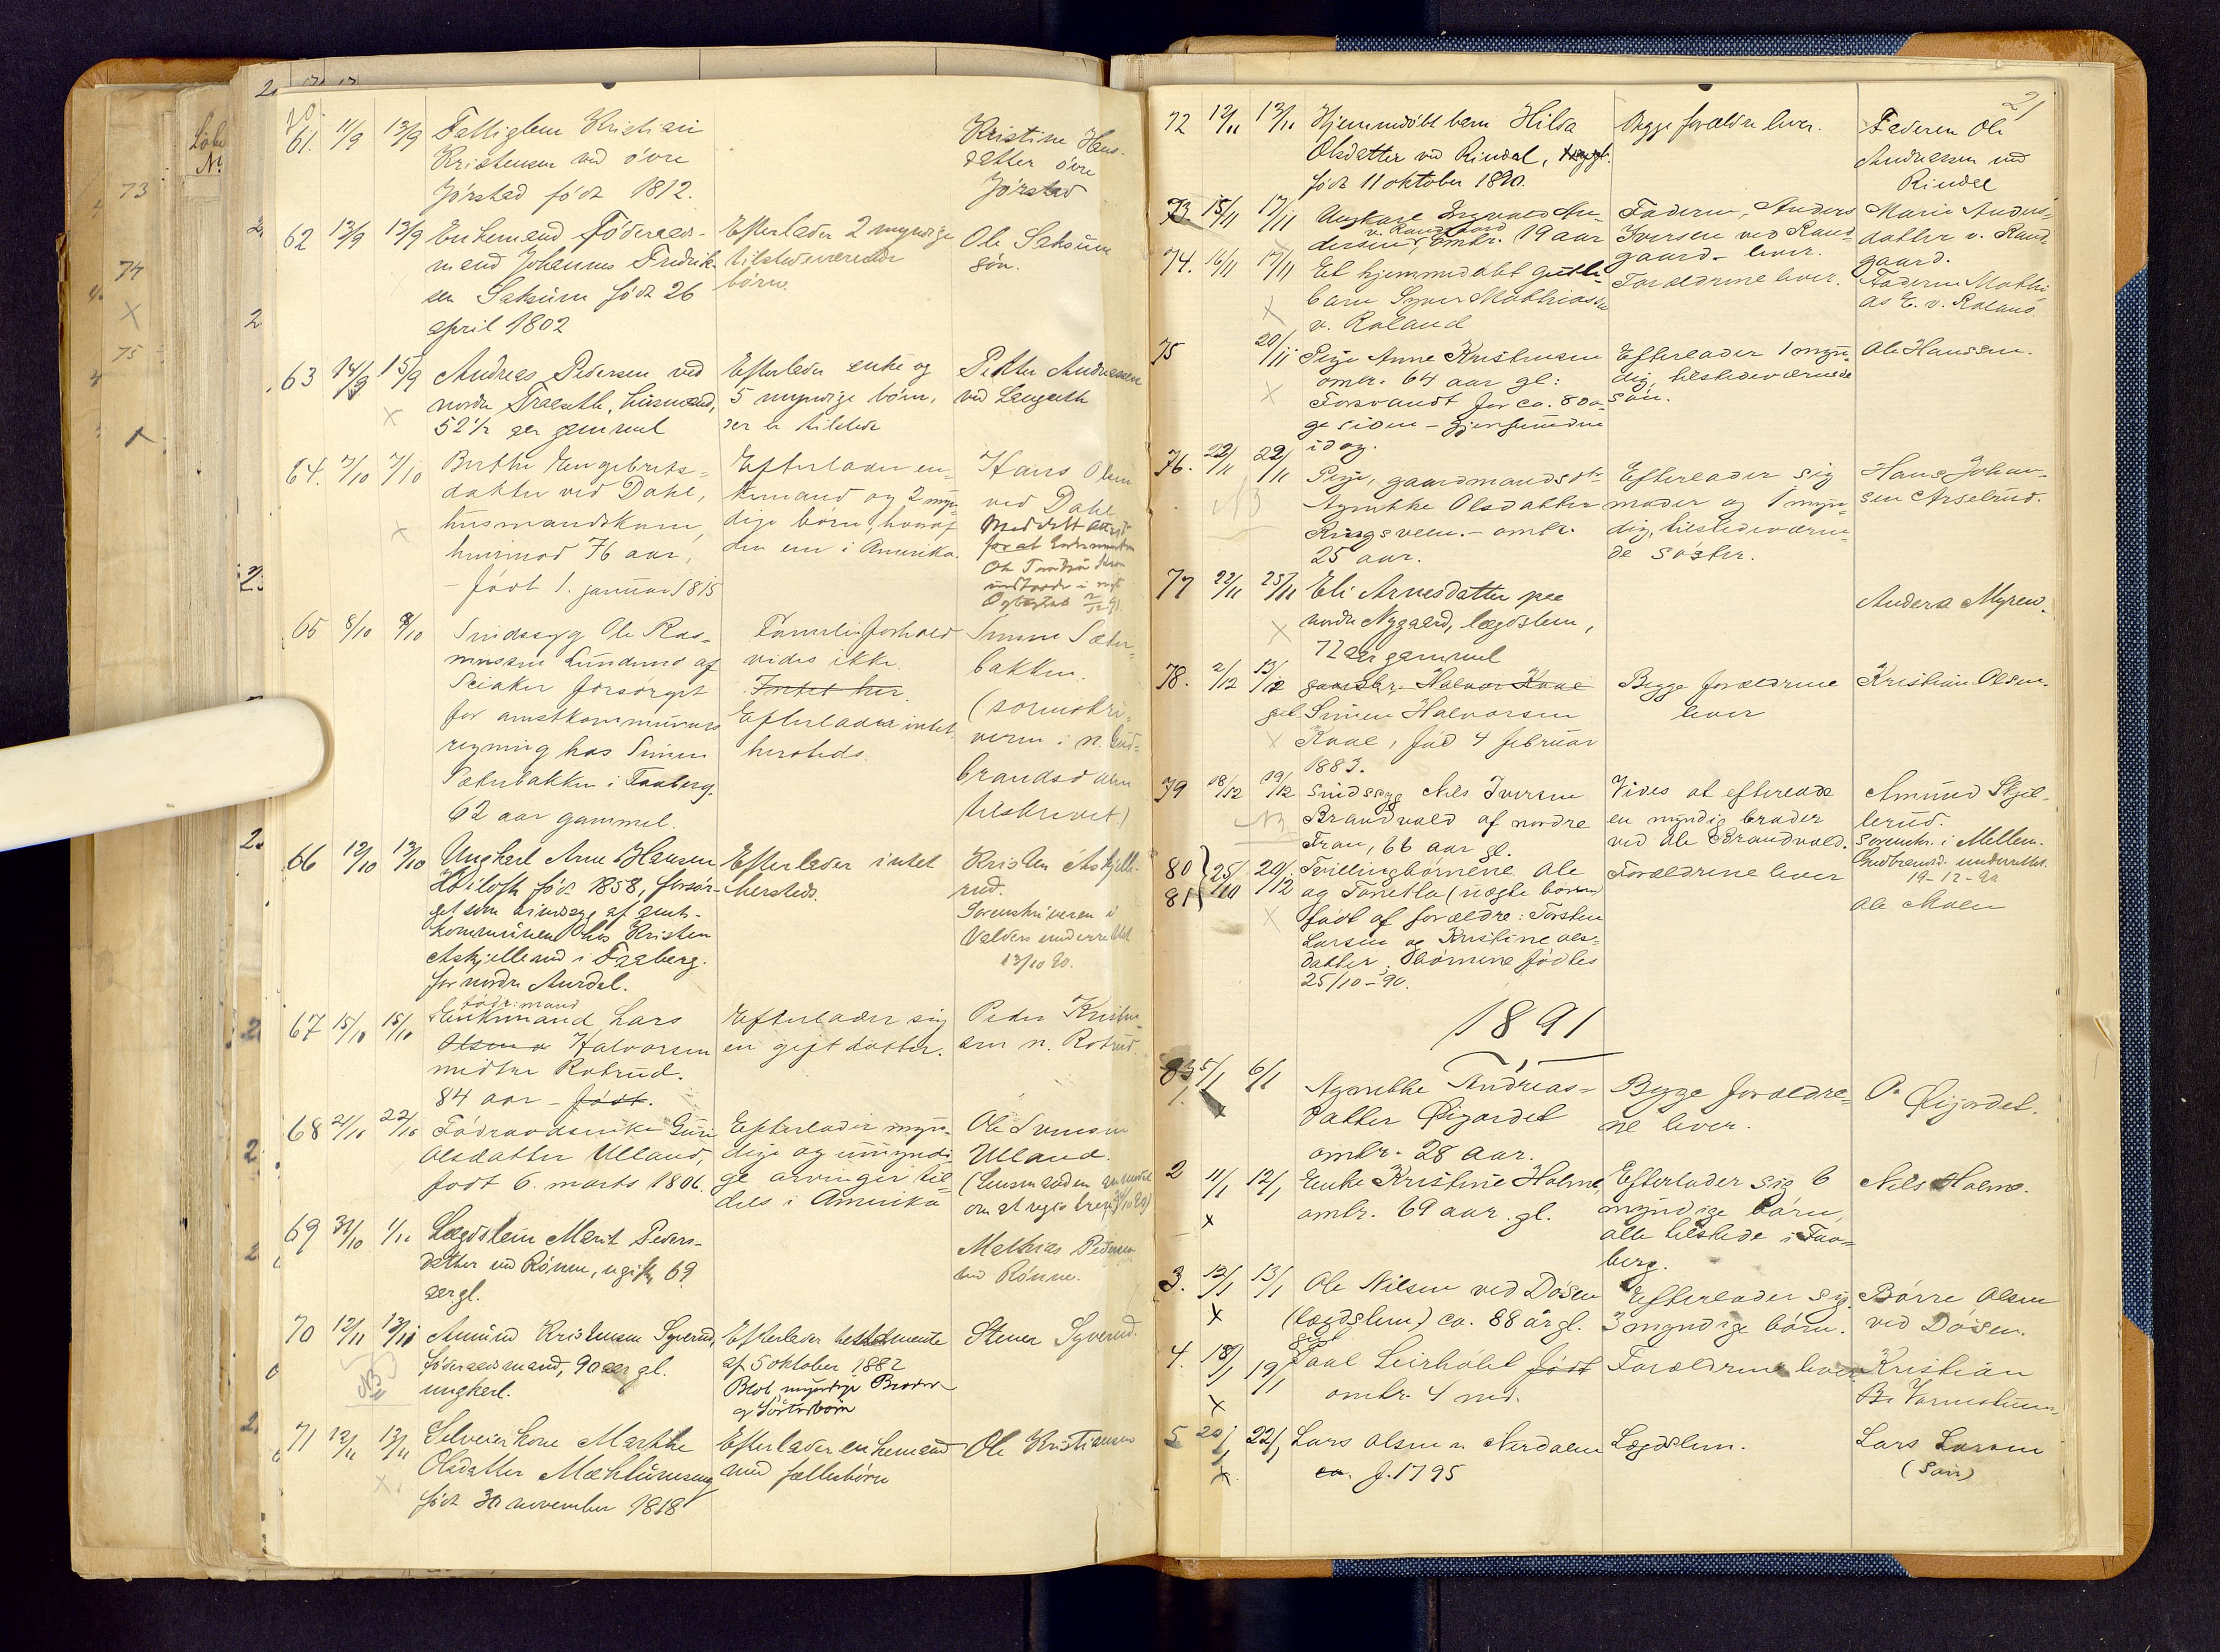 20.
61. 11/9 13/9 Fattiglem Kristian
Kristensen ved övre
Jörstad född 1812.
Kristine Hans-
datter övre
Jörstad
62 13/9 13/9 Enkemand Föderaads-
mand Johannes Fredrik-
sen Saksum född 26
april 1802
Efterlader 2 myndige
tilstedeværende
börn.
Ole Saksum
sön.
63 14/9 15/9 Andreas Pedersen ved
nordre Traaseth, husmand,
52½ aar gammel
Efterlader enke og
5 myndige börn,
der er tilstede
Petter Andreassen
ved
64. 7/10 7/10 Berthe Engebrets-
datter ved Dahl,
husmandskone,
henimod 76 aar,
- född 1. januar 1815
Efterlader en-
kemand og 2 myn-
dige börn, hvoraf
den ene i Amerika.
Hans Olsen
ved Dahl
65 8/10 8/10 Sindssyg Ole Ras-
mussen Lundene af
Skiaker forsörget
for amtskommunens
regning hos Simen
Sæterbakken i Faaberg.
62 aar gammel.
Familieforhold
vides ikke.
Intet her
Efterlader intet
hersteds.
Simen Sæter-
bakken.
(sorenskri-
veren i n. Gud-
brandsdalen
tilskrevet.)
66 12/10 13/10 Ungkarl Arne Hansen
född 1858, forsör-
get som sindssyg af amts-
kommunen hos Kristen
Askjellerud i Faaberg.
for nordre Aurdal.
Efterlader intet
hersteds.
Kristen Askjelle-
rud.
Sorenskriveren i
Valders underrettet
13/10 90.
67 15/10 15/10 föder.mand
Enkemand Lars
Olsen Halvorsen
midtre Rotrud.
84 aar - född.
Efterlader sig
en gift datter.
Peder Kristen-
sen n. Rotrud.
68 21/10 22/10 Föderaadsenke Guri
Olsdatter Ulland,
född 6. marts 1806.
Efterlader myn-
dige og umyndi-
ge arvinger til-
dels i Amerika
Ole Svensen
Ulland.
69 31/10 1/11 Lægdslem Marit Peders-
datter ved Rönne, ugift, 69
aar gl.
Mathias Pedersen
ved Rönne.
70 12/11 13/11 Amund Kristensen Syverud,
föderaadsmand, 90 aar gl.
ungkarl.
NB
Efterlader testamente
af 5 oktober 1882
Blot myndige Broder-
og Sösterbörn
Stener Syverud.
71 12/11 13/11 Selveierkone Marthe
Olsdatter Mæhlumseng
född 30 november 1818
Efterlader enkemand
med fællesbörn
Ole Kristiansen
21
72 12/11 13/11 Hjemmedöbt barn Hilda
Olsdatter ved Rindal,
född 11 oktober 1890.
Begge forældre lever.
Faderen Ole
Andreassen ved
Rindal
73. 15/11 17/11 Ungkarl Ingvald An-
v. Randgaard
dersen, omtr. 19 aar
Faderen, Anders
Iversen ved Rand-
gaard - lever.
Marie Anders-
datter v. Rand-
gaard.
74. 16/11 17/11 Et hjemmedöbt gutte-
barn Syver Mathiassen
v. Roland
Forældrene lever.
Faderen Mathi-
as E. v. Roland.
75 20/11 Pige Anne Kristensen
omtr. 64 aar gl:
Forsvandt for ca. 8 da-
ge siden - gjenfunden
idag.
Efterlader 1 myn-
dig, tilstedeværende
sön.
Ole Hanssen.
76. 22/11 22/11 Pige, gaardmandsdtr
Agnethe Olsdatter
Ringsveen. - omtr.
25 aar.
NB
Efterlader sig
moder og 1 myn-
dig, tilstedeværen-
de söster.
Hans Johan-
sen Arselrud.
77 22/11 25/11 Eli Arnesdatter paa
nordre Nygaard, lægdslem,
72 aar gammel
Anders Myren.
78. 2/12 13/12 gaardbr. Halvor Kaal
gut Simen Halvorsen
Kaal, föd 4 februar
1883.
Begge forældrene
lever
Kristian Olsen.
79 18/12 19/12 Sindssyg Nils Iversen
Brandvold af nordre
Fron, 66 aar gl.
Vides at efterlade
en myndig broder
ved Ole Brandvold.
Amund Skjel-
lerud.
Sorenskr. i Mellem-
Gudbrandsd. underrettet.
19-12-90
80
81 25/10 20/12 Tvillingbörnene Ole
og Tonetta (uægte börn)
född af forældre: Torsten
Larsen og Kristine Ols-
datter. Börnene födtes
25/10-90.
Forældrene lever
Ole Moen
1891
1. 5/1 6/1 Agnethe Andreas-
datter Øigardet
omtr. 28 aar.
Begge forældre-
ne lever.
O. Øigardet.
2 11/1 12/1 Enke Kristine Holme,
omtr. 69 aar gl.
Efterlader sig 6
myndige börn,
alle tilstede i Faa-
berg.
Nils Holme.
3. 12/1 13/1 Ole Nilsen ved Dösen
(lægdslem) ca. 88 år gl.
Efterlader sig
3 myndige börn.
Börre Olsen
ved Dösen.
4. 18/1 19/1 Paul Leirholet född
omtr. 4 md.
Forældrene lever
Kristian
5 20/1 22/1 Lars Olsen v. Nerdalen
ca. f. 1795
Lægdslem.
Lars Larsen
(Sön)